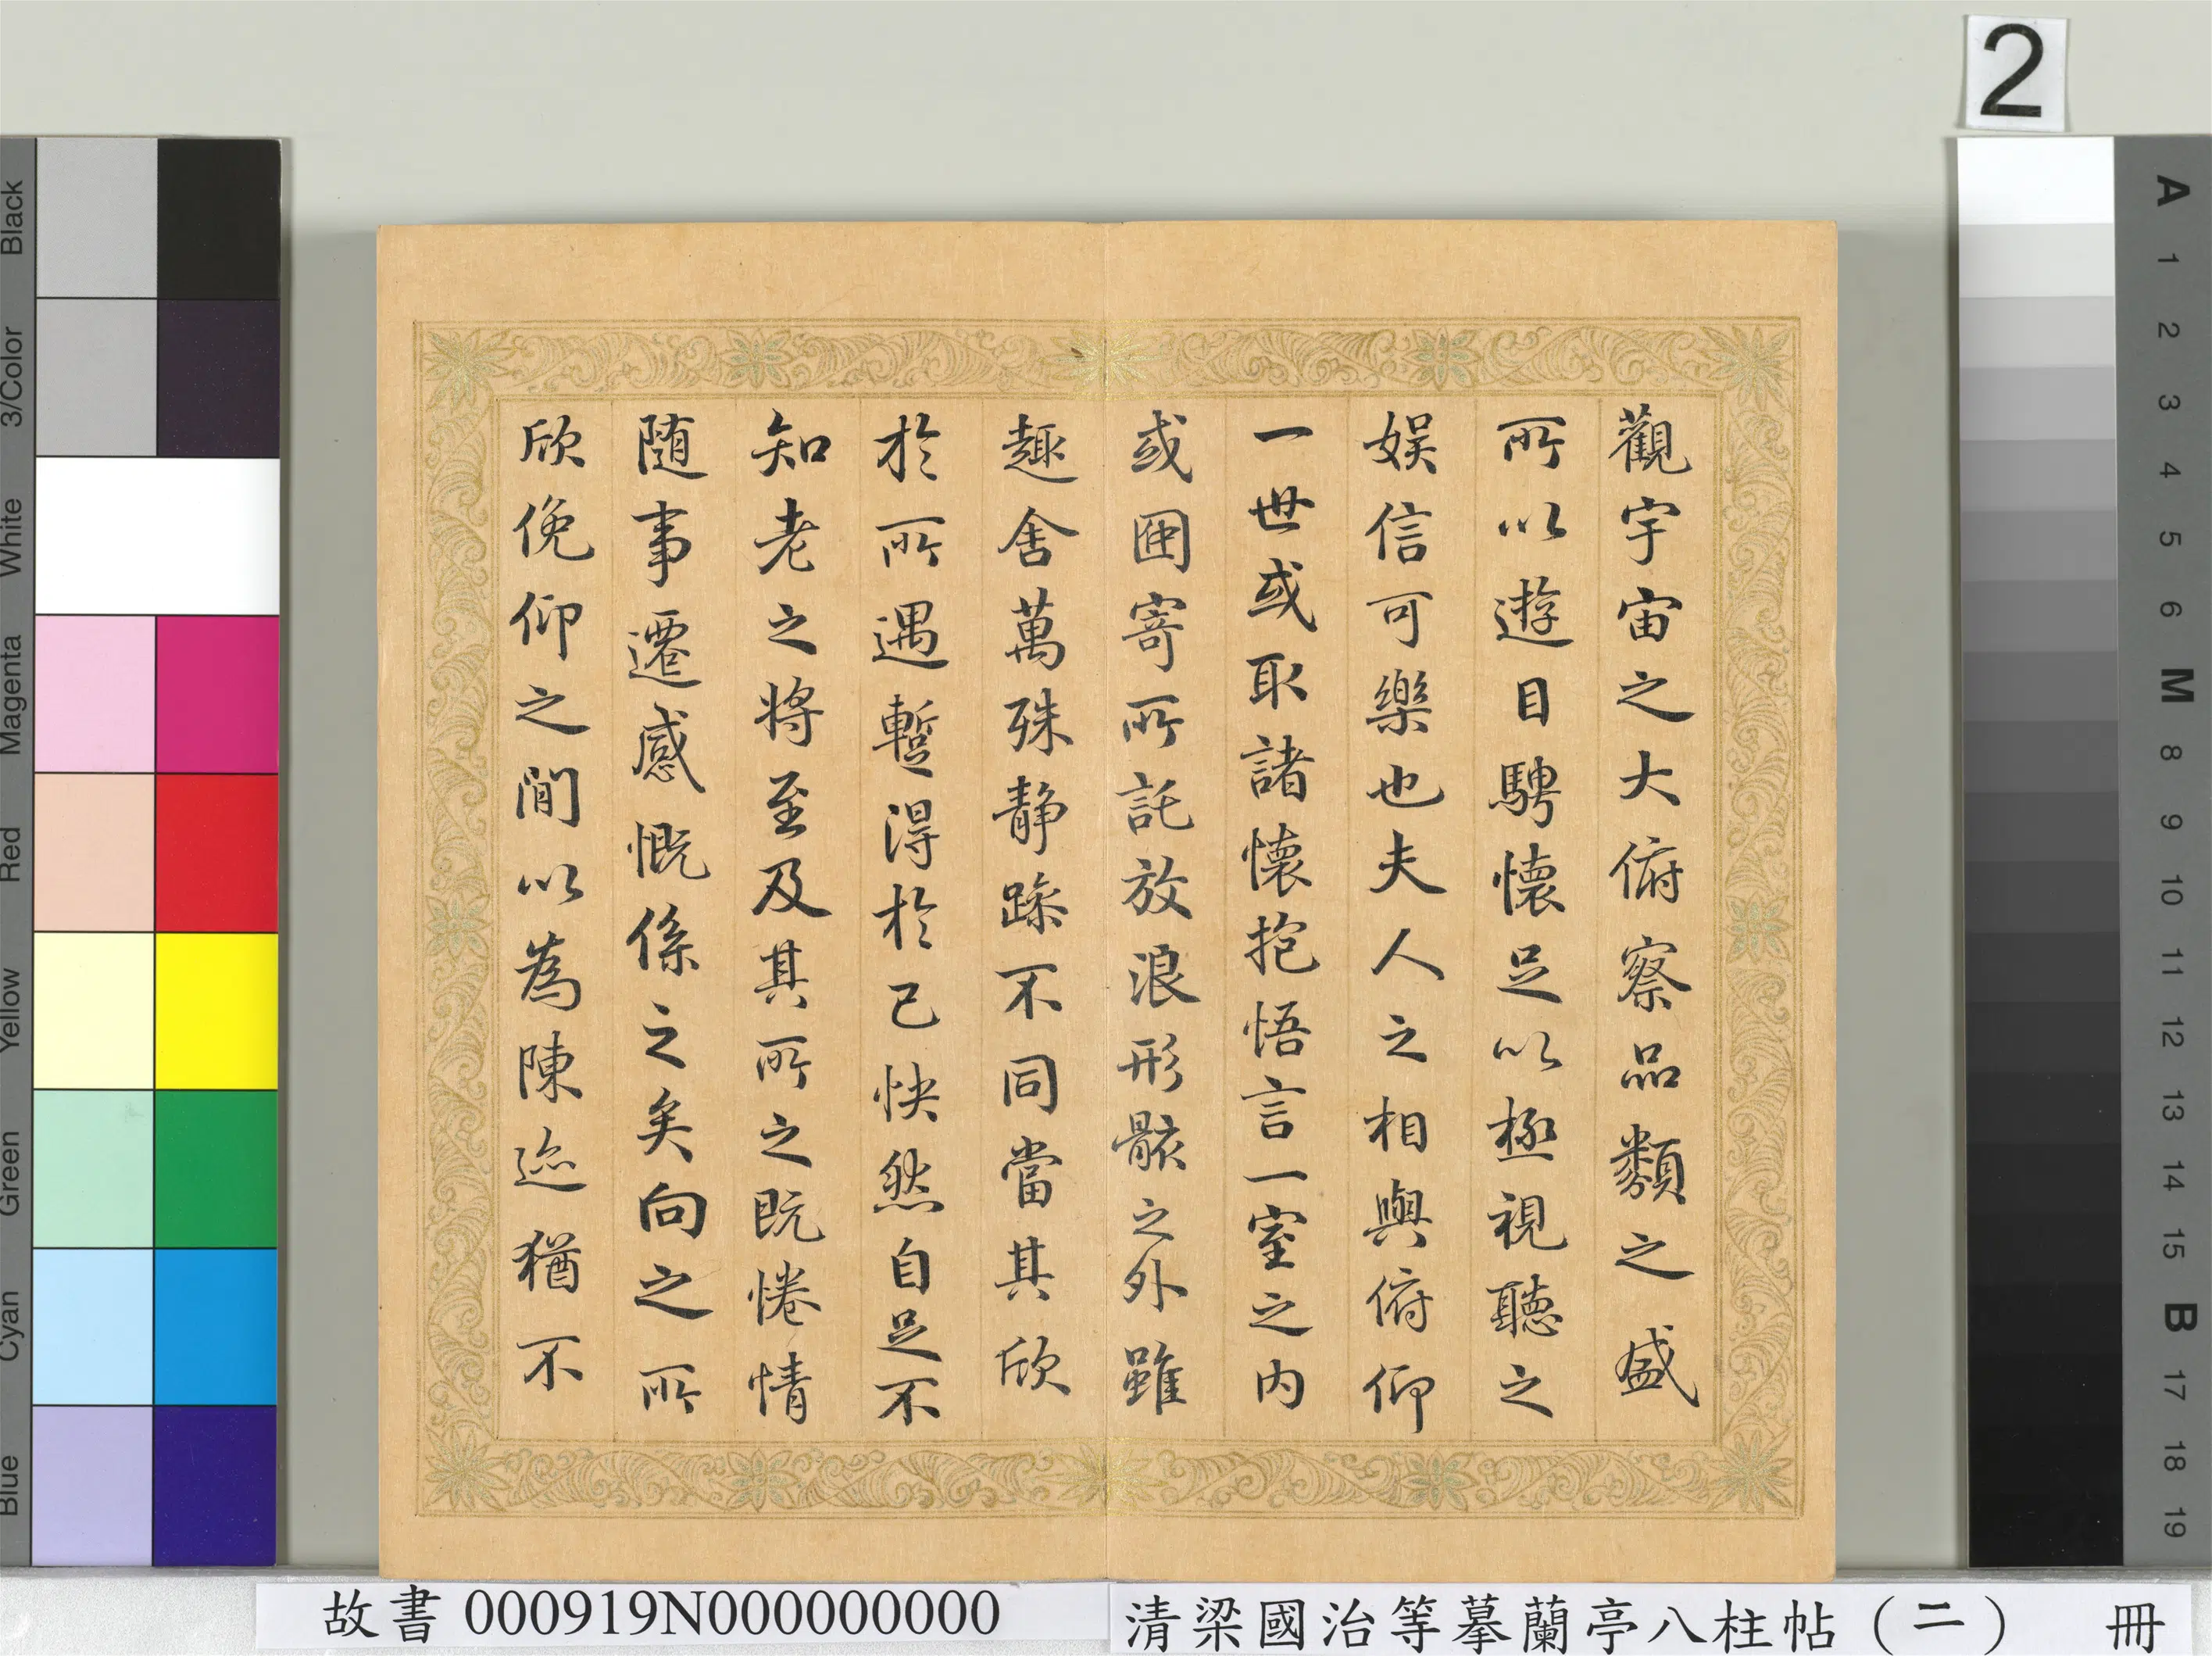 2
觀宇宙之大俯察品類之盛
所以遊目騁懷足以極視聽之
娛信可樂也夫人之相與俯仰
一世或取諸懷抱悟言一室之內
或因寄所託放浪形骸之外雖
趣舍萬殊靜躁不同當其欣
於所遇蹔得於己快然自足不
知老之將至及其所之既惓情
隨事遷感慨係之矣向之所
欣俛仰之閒以為陳迹猶不
Black
3/Color
White
Magenta
Red
Yellow
Green
Cyan
Blue
A
1
2
3
4
5
6
M
8
9
10
11
12
13
14
15
B
17
18
19
故書 000919N000000000
清梁國治等摹蘭亭八柱帖(二) 冊